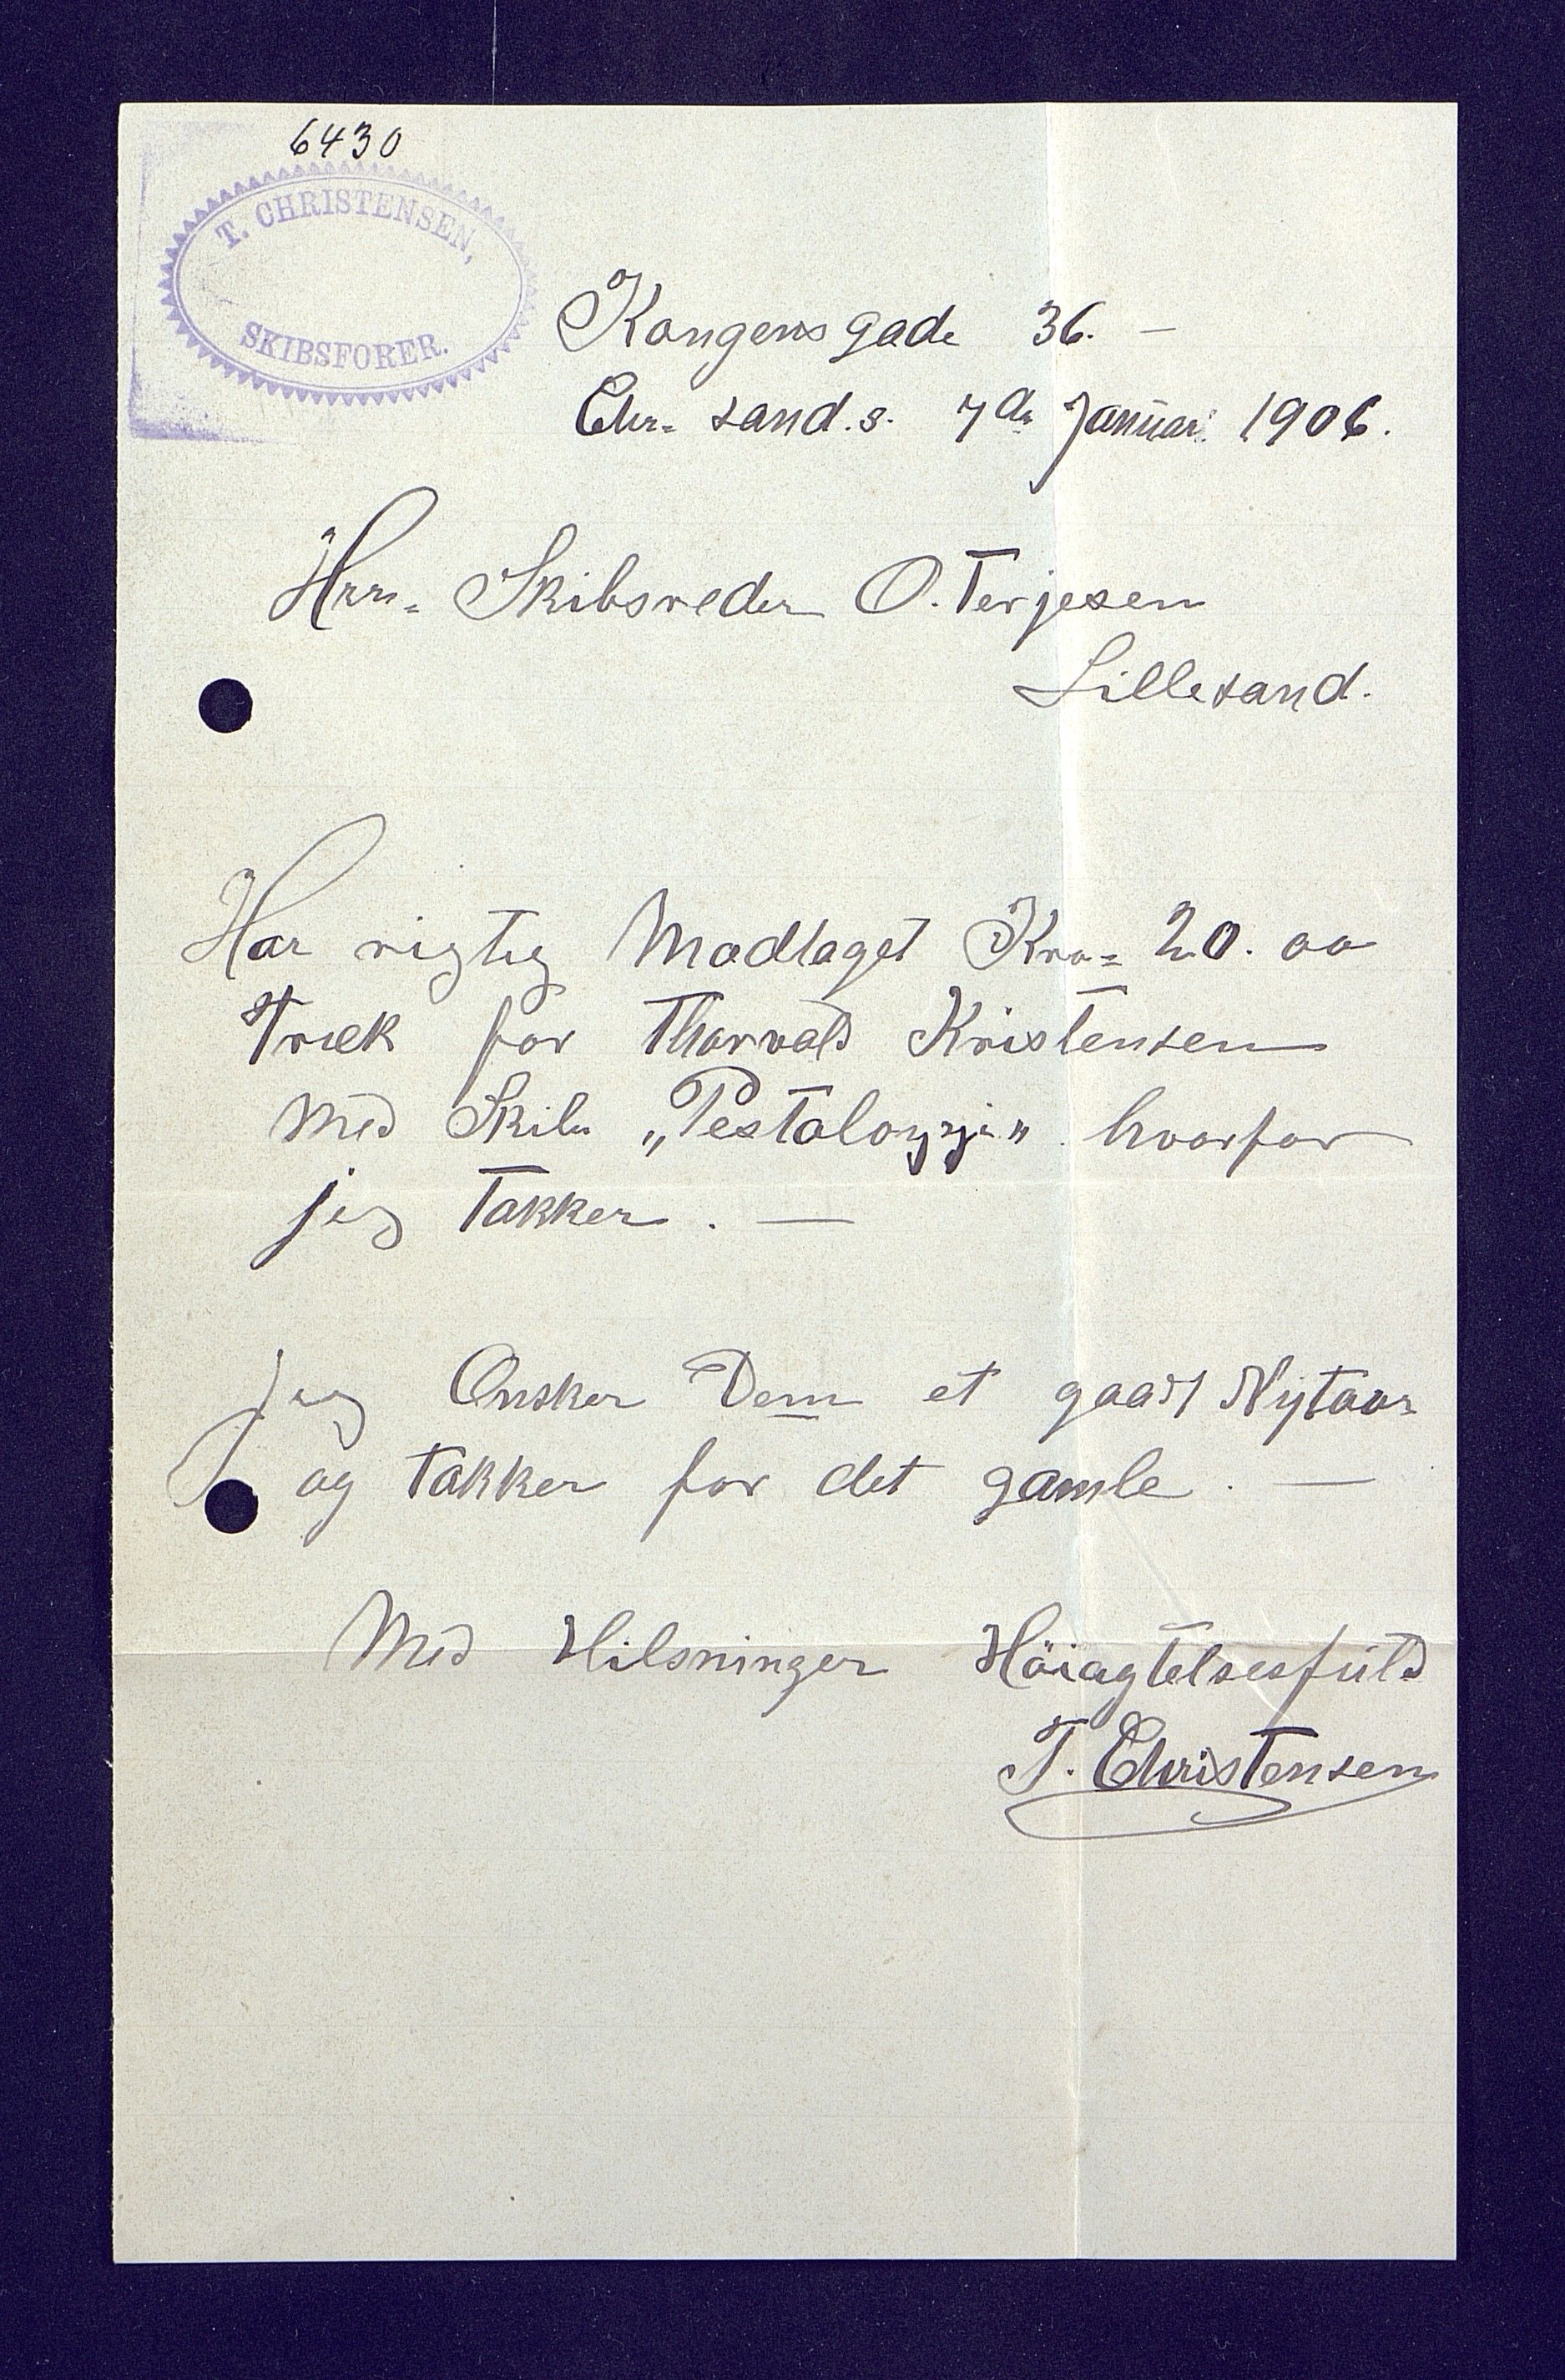 6430
T. CHRISTENSEN,
SKIBSFORER.
Kongens gade 36. —
Chr= sand. s. 7de Januar 1906.
Herr= Skibsreder O. Terjesen
Lillesand.
Har rigtig Modtaget Kro= 20. 00
Træk for Thorvald Kristensen
med Skib „Pestalozzi" hvorfor
jeg takker. —
jeg Onsker Dem et gaadt Nytaar
og takker for det gamle. —
Med Hilsninger Höiagtelsesfuld
T. Christensen